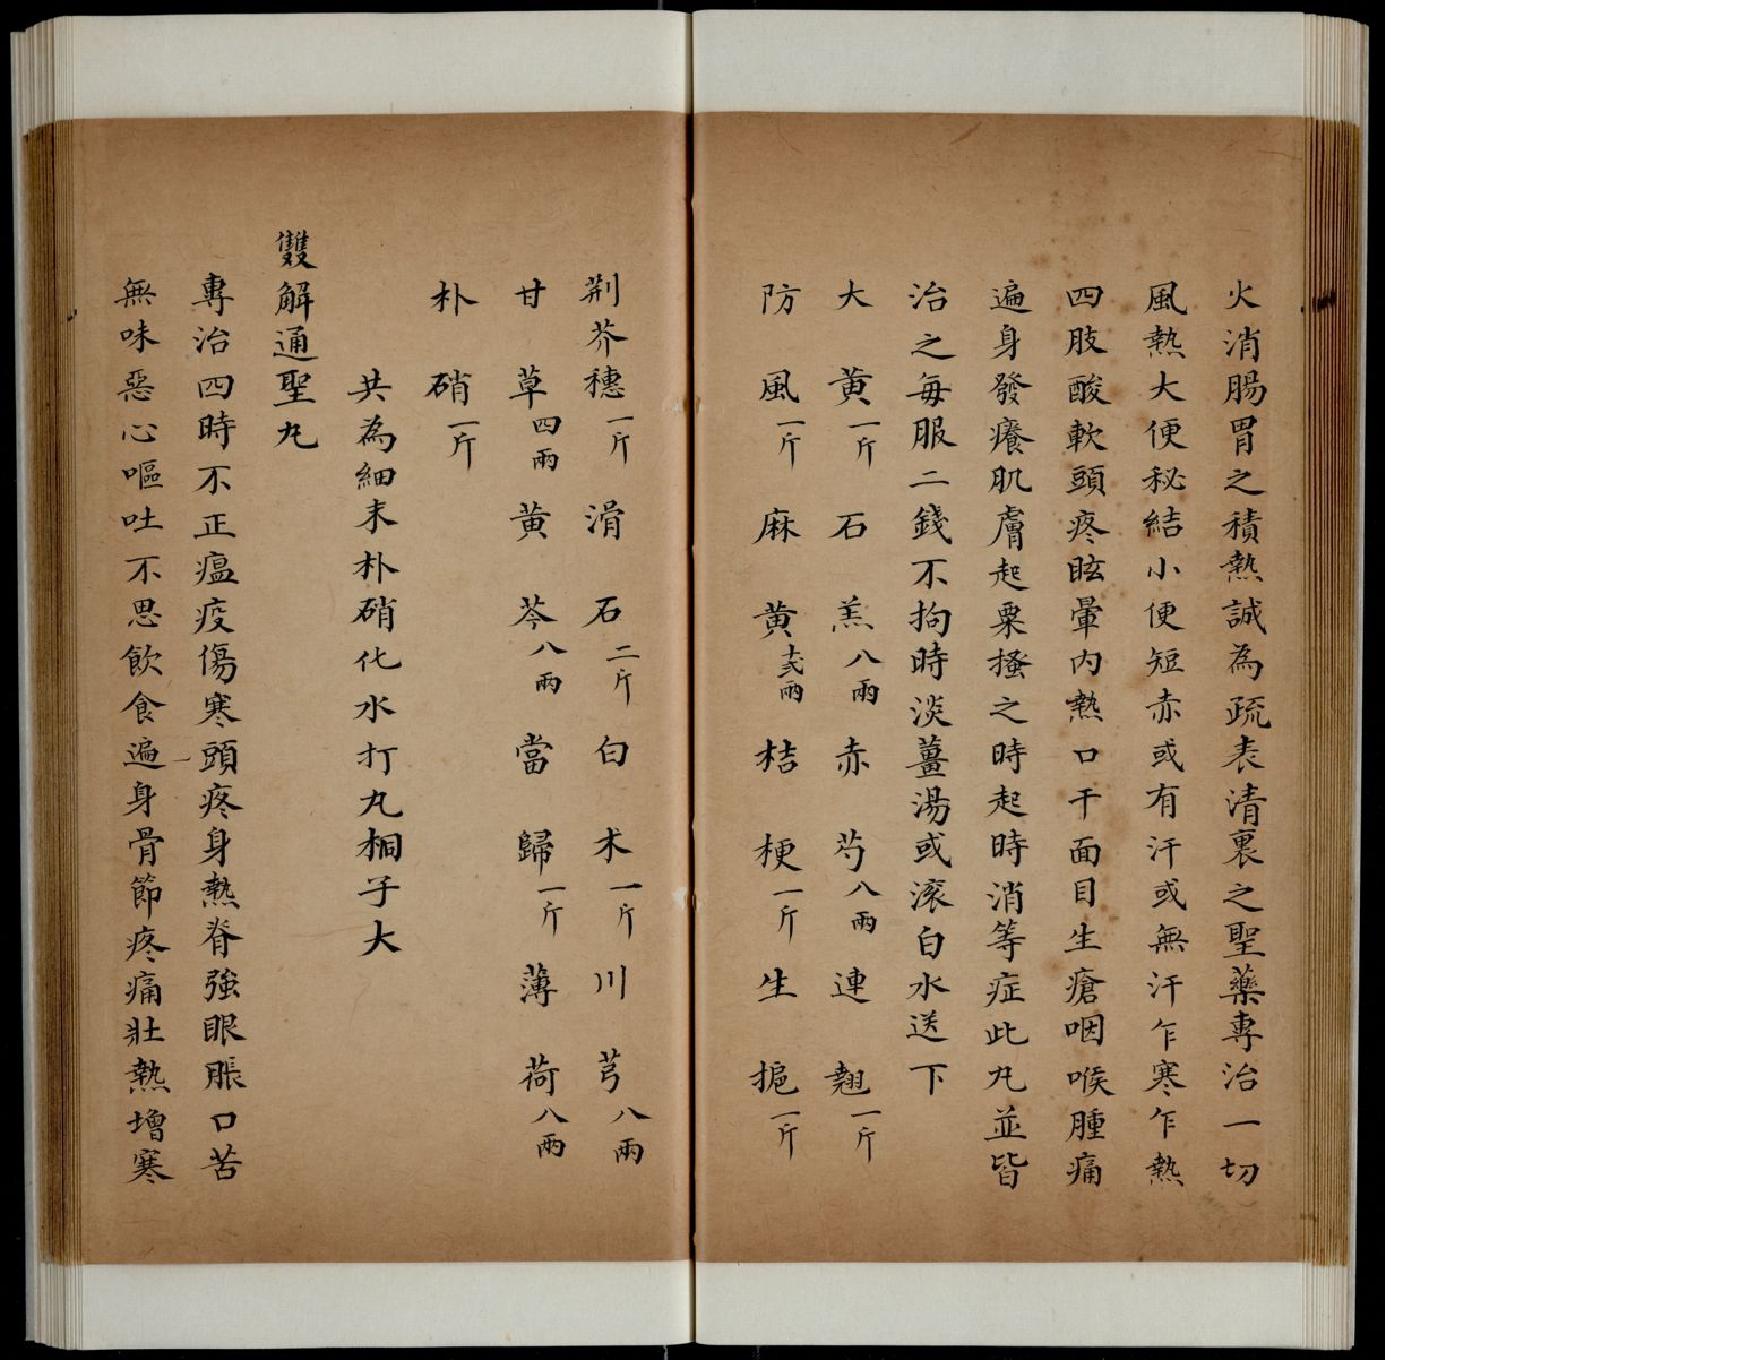 火消腸胃之積熱誠為疏表清裏之聖藥專治一切
風熱大便秘結小便短赤或有汗或無汗乍寒乍熱
四肢酸軟頭疼眩暈內熱口干面目生瘡咽喉腫痛
遍身發癢肌膚起粟搔之時起時消等症此丸並皆
治之每服二錢不拘時淡薑湯或滚白水送下
大黃一斤 石羔八兩 赤芍八兩 連翹一斤
防風一斤 麻黃十弍兩 桔梗一斤 生梔一斤
荊芥穗一斤 滑石二斤 白朮一斤 川芎八兩
甘草四兩 黃芩八兩 當歸一斤 薄荷八兩
朴硝一斤
共為細末朴硝化水打丸桐子大
雙解通聖丸
專治四時不正瘟疫傷寒頭疼身熱脊強眼脹口苦
無味惡心嘔吐不思飲食遍身骨節疼痛壯熱增寒